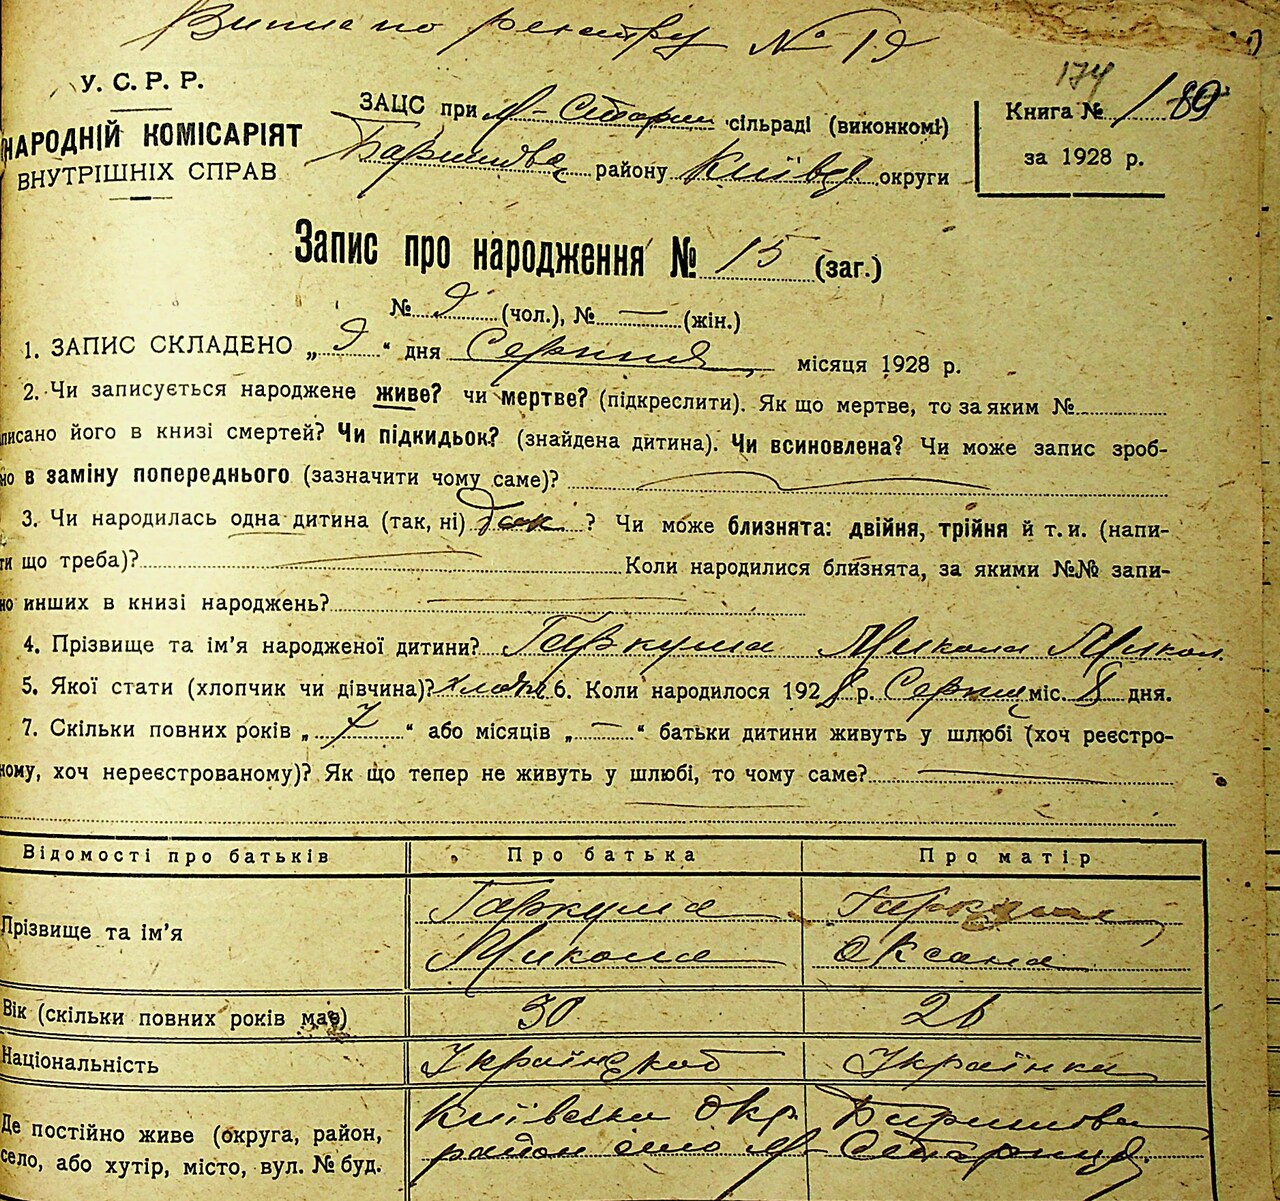 Випис по реєстру № 19
174
У. С. Р. Р.
НАРОДНІЙ КОМІСАРІЯТ
ВНУТРІШНІХ СПРАВ
ЗАЦС при М-Стариц. сільраді (виконкомі)
Баришівск. району Київск. округи
Книга № 1 89
за 1928 р.
Запис про народження № 15 (заг.)
№ 9 (чол.), № — (жін.)
1. ЗАПИС СКЛАДЕНО „ 9 “ дня Серпня місяця 1928 р.
2. Чи записується народжене живе? чи мертве? (підкреслити). Як що мертве, то за яким №
писано його в книзі смертей? Чи підкидьок? (знайдена дитина). Чи всиновлена? Чи може запис зроб-
но в заміну попереднього (зазначити чому саме)?
3. Чи народилась одна дитина (так, ні) так ? Чи може близнята: двійня, трійня й т. и. (напи-
ти що треба)? Коли народилися близнята, за якими №№ запи-
но инших в книзі народжень?
4. Прізвище та ім’я народженої дитини? Гаркуша Микола Микол.
5. Якої статі (хлопчик чи дівчина)? хлопч 6. Коли народилося 1928 р. Серпня міс. 8 дня.
7. Скільки повних років „ 7 “ або місяців „ — “ батьки дитини живуть у шлюбі (хоч реєстро-
ному, хоч нереєстрованому)? Як що тепер не живуть у шлюбі, то чому саме?
Відомості про батьків Про батька Про матір
Прізвище та ім’я Гаркуша Гаркуша
Микола Оксана
Вік (скільки повних років має) 30 26
Національність Українець Українка
Де постійно живе (округа, район, Київська Окр. Баришівск
село, або хутір, місто, вул. № буд. район село М-Стариця.